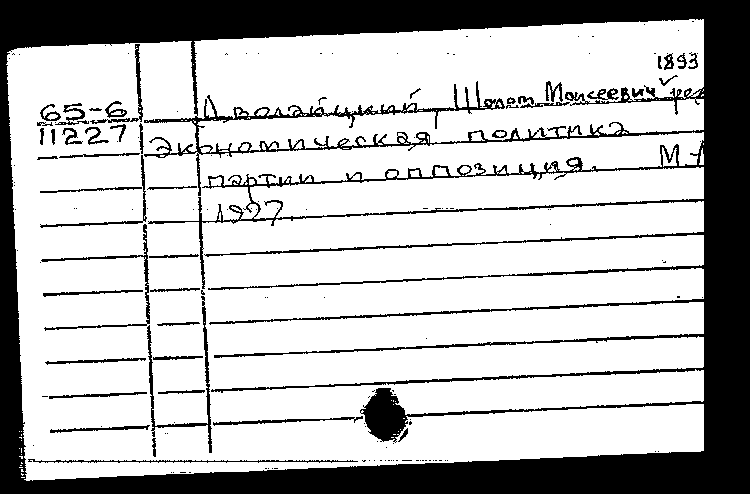 1893
65-6 Дволайцкий, Шолом Моисеевич ред
11227 Экономическая политика
партии и оппозиция. М-Л
1927.